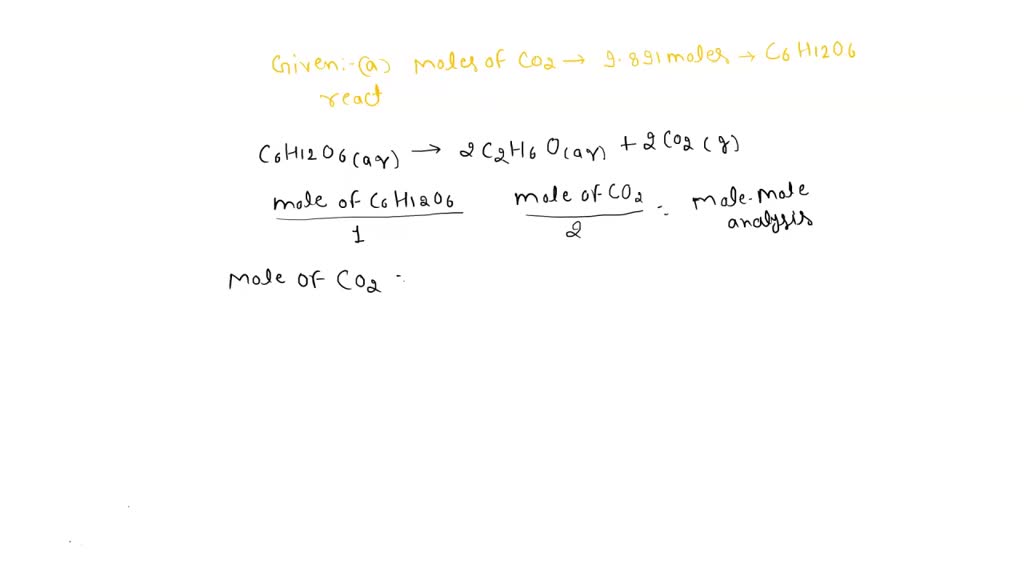 Given:-(a) moles of CO2 → 9.891 moles → C6H12O6
react
C6H12O6(aq) → 2C2H6O(aq) + 2CO2(g)
mole of C6H12O6 mole of CO2 = mole-mole
1 2 analysis
Mole of CO2 :